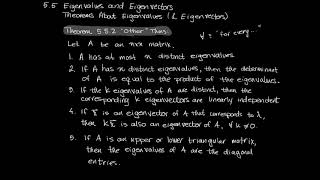 5.5 Eigenvalues and Eigenvectors
Theorems About Eigenvalues (& Eigenvectors)
Theorem 5.5.2 "Other" Thms.
∀ = "for every..."
Let A be an nxn matrix.
1. A has at most n distinct eigenvalues.
2. If A has n distinct eigenvalues, then the determinant
of A is equal to the product of the eigenvalues.
3. If the k eigenvalues of A are distinct, then the
corresponding k eigenvectors are linearly independent
4. If v̄ is an eigenvector of A that corresponds to λ,
then kv̄ is also an eigenvector of A, ∀ k ≠ 0.
5. If A is an upper or lower triangular matrix,
then the eigenvalues of A are the diagonal
entries.